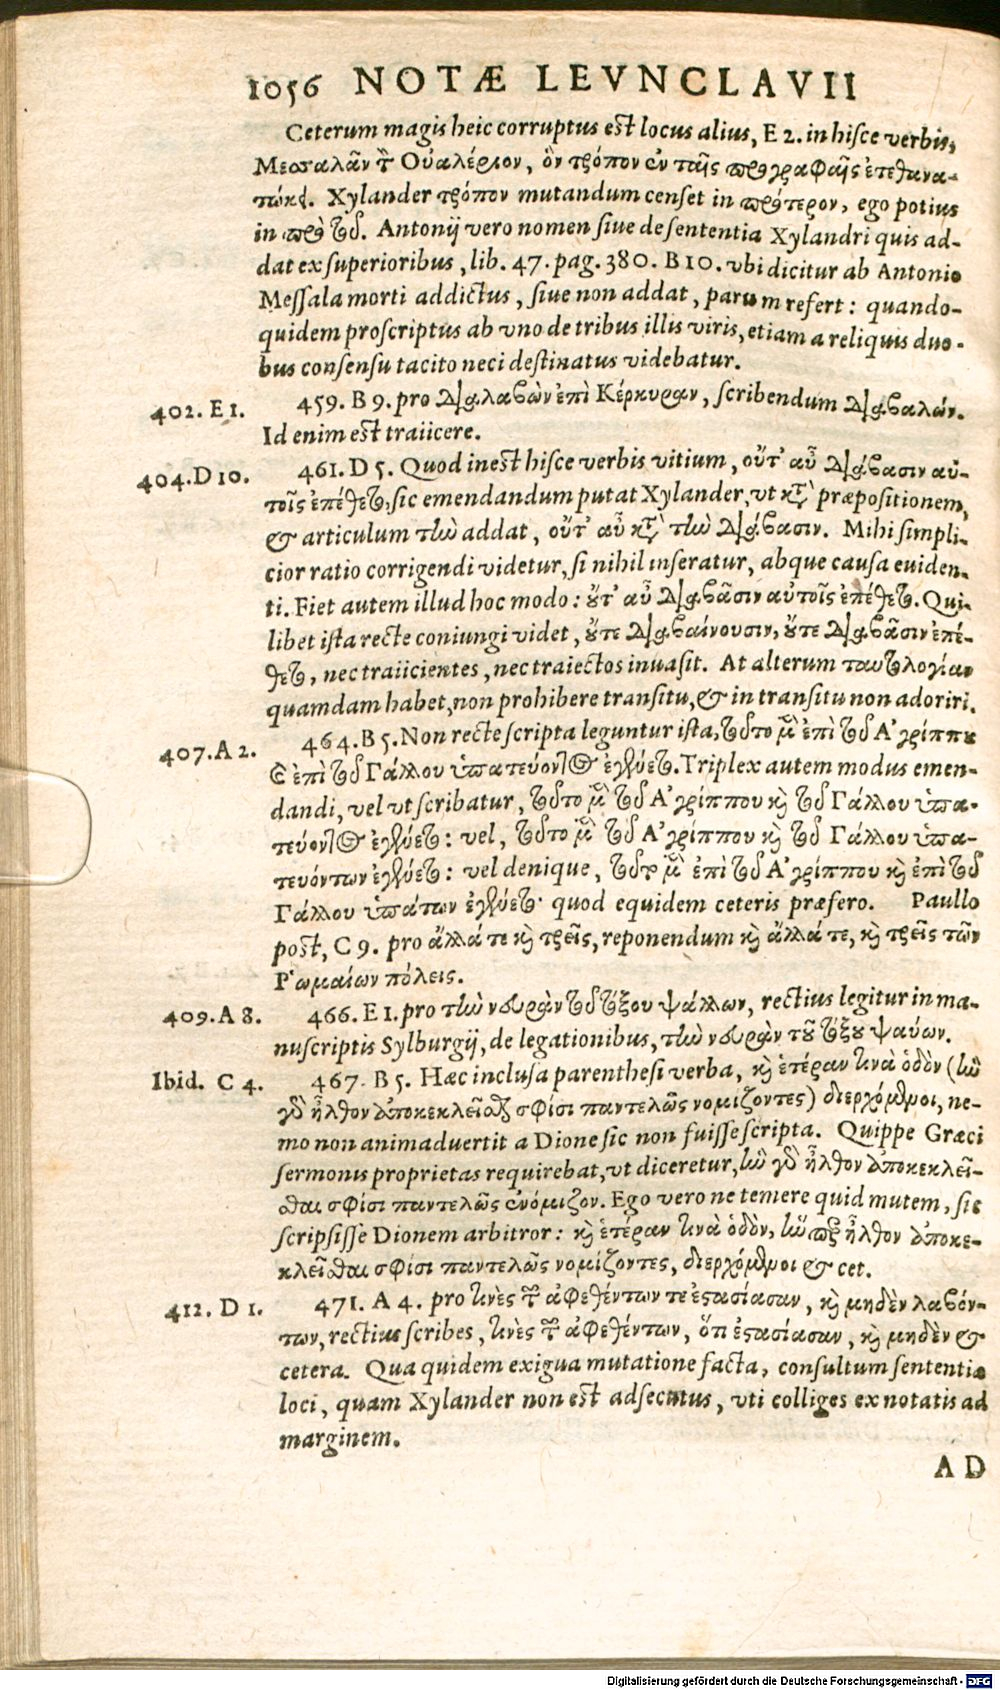 1056 NOTÆ LEVNCLAVII
Ceterum magis heic corruptus est locus alius, E 2. in hisce verbis,
Μεσσαλᾶν τ̃ Οὐαλέριον, ὃν τρόπον ἐν ταῖς προγραφαῖς ἐτεθανα-
τώκει. Xylander τρόπον mutandum censet in πρότερον, ego potius
in πρὸ τοῦ. Antonij vero nomen siue de sententia Xylandri quis ad-
dat ex superioribus, lib. 47. pag. 380. B 10. vbi dicitur ab Antonio
Messala morti addictus, siue non addat, parum refert: quando-
quidem proscriptus ab vno de tribus illis viris, etiam a reliquis duo-
bus consensu tacito neci destinatus videbatur.
402. E 1. 459. B 9. pro διαλαβὼν ἐπὶ Κέρκυραν, scribendum διαβαλών.
Id enim est traiicere.
404. D 10. 461. D 5. Quod inest hisce verbis vitium, οὔτ' αὖ διάβασιν αὐ-
τοῖς ἐπέθετο, sic emendandum putat Xylander, vt κτ̀ præpositionem,
& articulum τὼ addat, οὔτ' αὖ κτ̀ τὼ διάβασιν. Mihi simpli-
cior ratio corrigendi videtur, si nihil inseratur, absque causa euiden-
ti. Fiet autem illud hoc modo: ȣ̓́τ' αὖ διαβᾶσιν αὐτοῖς ἐπέθετο. Qui-
libet ista recte coniungi videt, ȣ̓́τε διαβαίνουσιν, ȣ̓́τε διαβᾶσιν ἐπέ-
θετο, nec traiicientes, nec traiectos inuasit. At alterum ταυτολογίαν
quamdam habet, non prohibere transitu, & in transitu non adoriri.
407. A 2. 464. B 5. Non recte scripta leguntur ista, τοῦτο μ̀ ἐπὶ τοῦ Ἀγρίππȣ
ϗ ἐπὶ τοῦ Γάλλου ὑπατεύοντος ἐγένετο. Triplex autem modus emen-
dandi, vel vt scribatur, τοῦτο μ̀ τοῦ Ἀγρίππου κὶ τοῦ Γάλλου ὑπα-
τεύοντος ἐγένετο: vel, τοῦτο μ̀ τοῦ Ἀγρίππου κὶ τοῦ Γάλλου ὑπα-
τευόντων ἐγένετο: vel denique, τοῦτο μ̀ ἐπὶ τοῦ Ἀγρίππου κὶ ἐπὶ τοῦ
Γάλλου ὑπάτων ἐγένετο· quod equidem ceteris præfero. Paullo
post, C 9. pro ἄλλά τε κὶ τρεῖς, reponendum κὶ ἄλλά τε, κὶ τρεῖς τῶν
Ῥωμαίων πόλεις.
409. A 8. 466. E 1. pro τὼ νευρὰν τοῦ τόξου ψάλλων, rectius legitur in ma-
nuscriptis Sylburgij, de legationibus, τὼ νευρὰν τȣ͂ τόξȣ ψαύων.
Ibid. C 4. 467. B 5. Hæc inclusa parenthesi verba, κὶ ἑτέραν τινὰ ὁδὸν (ἣν
γὸ ἦλθον ἀποκεκλεῖσθαι σφίσι παντελῶς νομίζοντες) διερχόμενοι, ne-
mo non animaduertit a Dione sic non fuisse scripta. Quippe Græci
sermonis proprietas requirebat, vt diceretur, ἣν γὸ ἦλθον ἀποκεκλεῖ-
σθαι σφίσι παντελῶς ἐνόμιζον. Ego vero ne temere quid mutem, sic
scripsisse Dionem arbitror: κὶ ἑτέραν τινὰ ὁδὸν, ἥνπερ ἦλθον ἀποκε-
κλεῖσθαι σφίσι παντελῶς νομίζοντες, διερχόμενοι & cet.
412. D 1. 471. A 4. pro τινὲς τ̃ ἀφεθέντων τε ἐστασίασαν, κὶ μηδὲν λαβόν-
των, rectius scribes, τινὲς τ̃ ἀφεθέντων, ὅτι ἐστασίασαν, κὶ μηδὲν &
cetera. Qua quidem exigua mutatione facta, consultum sententiæ
loci, quam Xylander non est adsecutus, vti colliges ex notatis ad
marginem.
AD
Digitalisierung gefördert durch die Deutsche Forschungsgemeinschaft - DFG